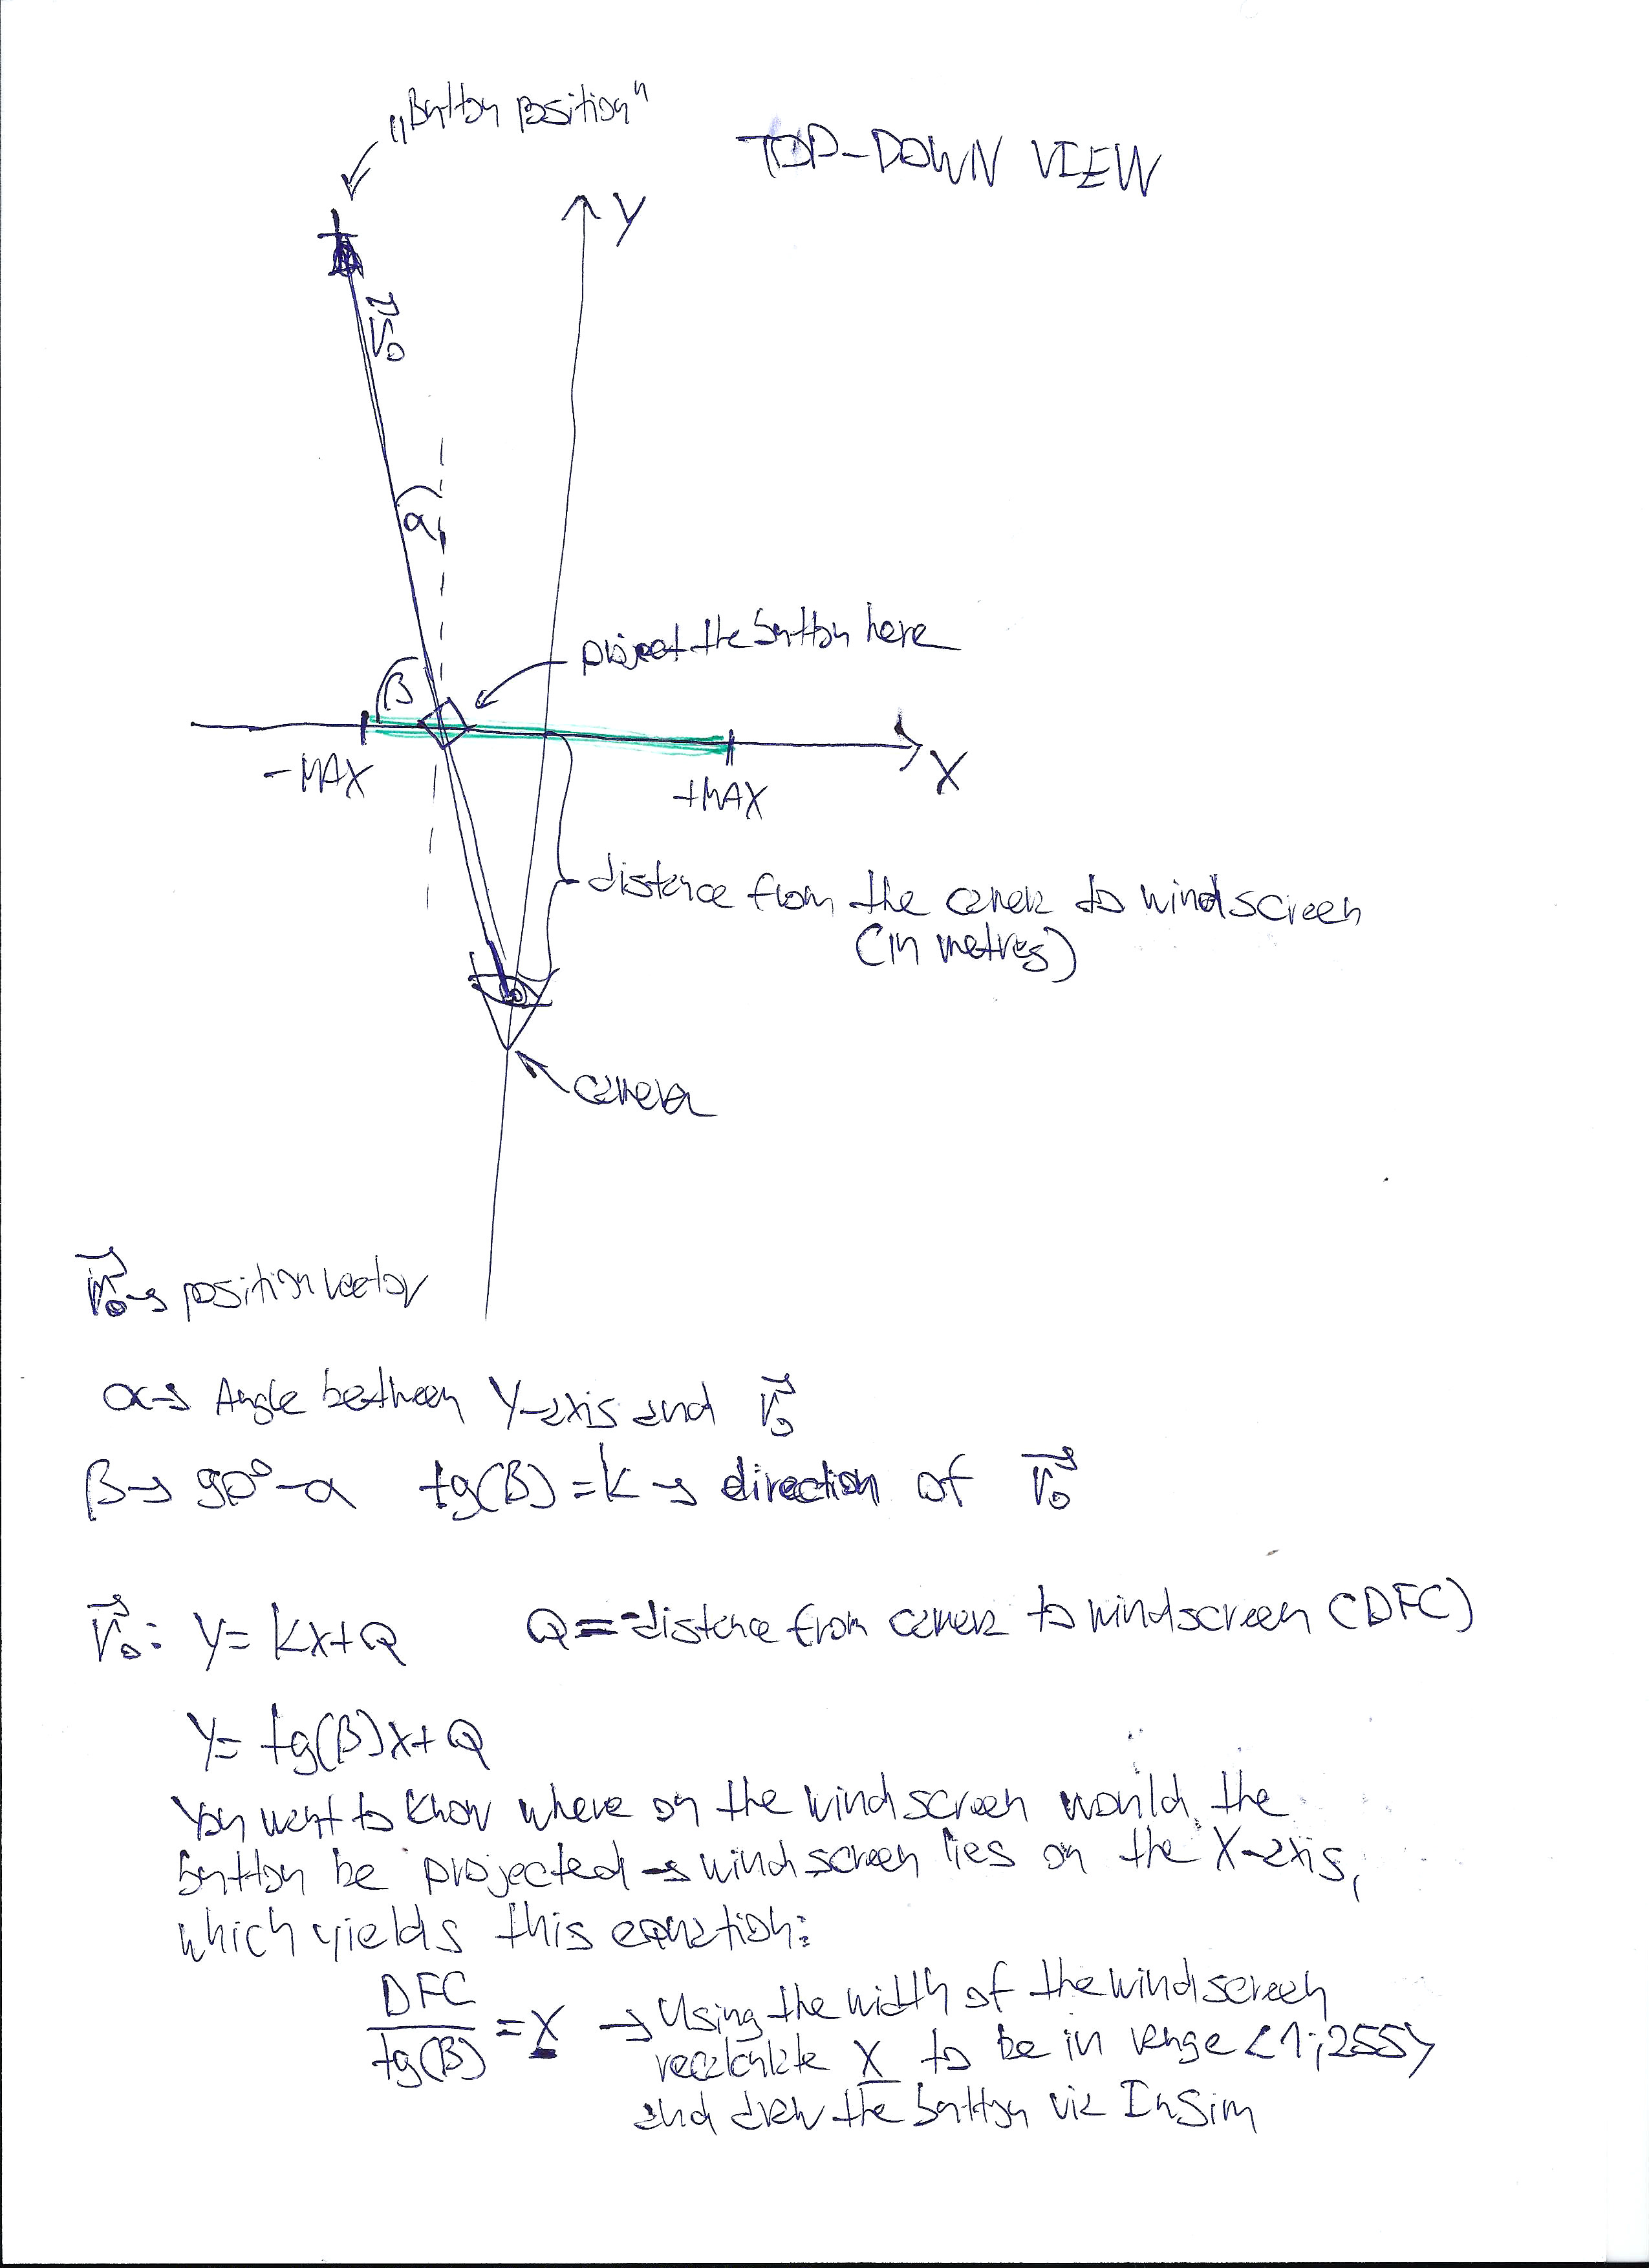 „Button position"
TOP-DOWN VIEW
Y
v₀
α
project the button here
β
-MAX
+MAX
X
distance from the camera to windscreen
(in metres)
camera
v₀→ → position vector
α → Angle between Y-axis and v₀→
β → 90°-α tg(β) = k → direction of v₀→
v₀→: Y = kx+Q Q = -distance from camera to windscreen (DFC)
Y = tg(β)x+Q
You want to know where on the windscreen would the
button be projected → windscreen lies on the X-axis,
which yields this equation:
DFC
tg(β) = X → Using the width of the windscreen
recalculate X to be in range <1;255>
and draw the button via InSim